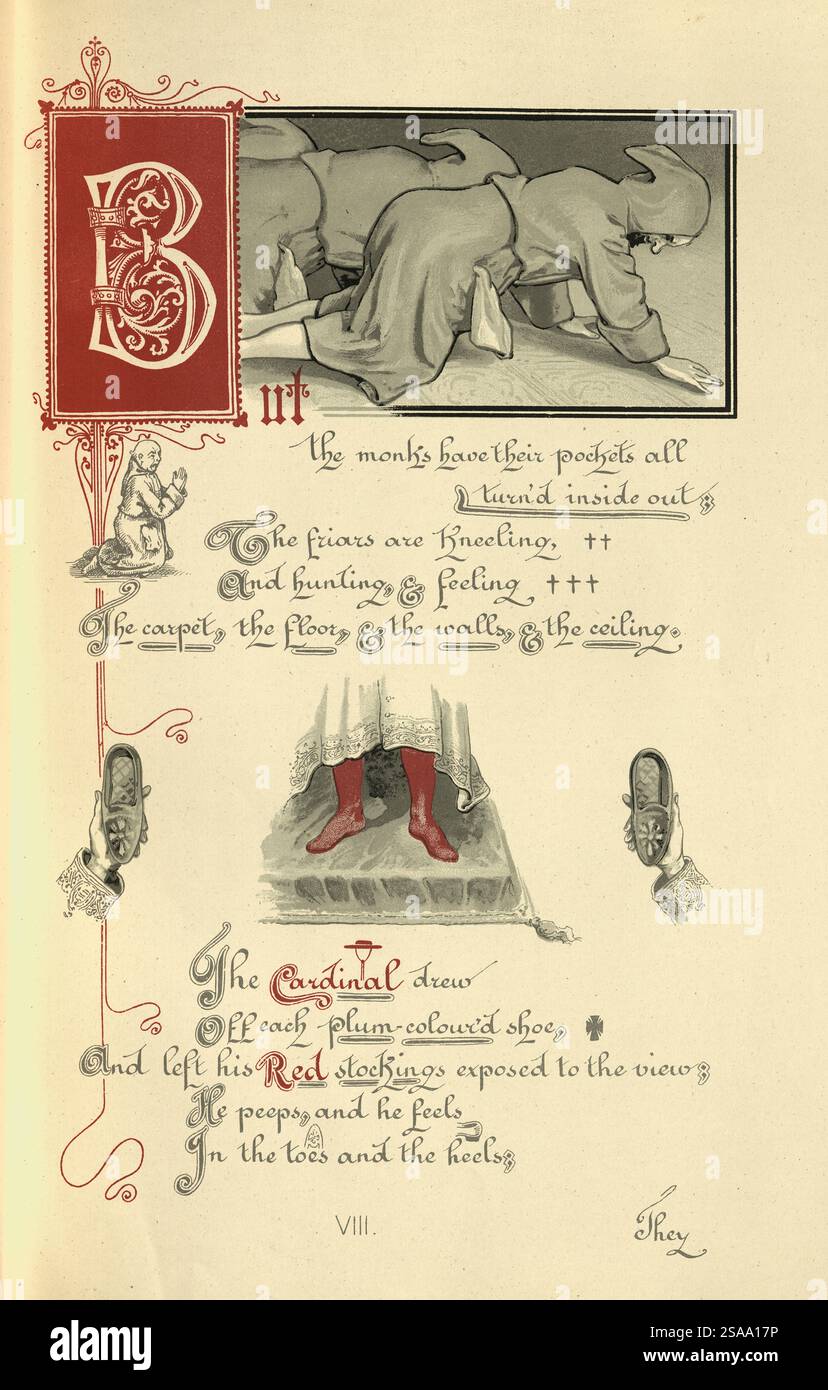 But
the monks have their pockets all
turn'd inside out;
The friars are kneeling, ††
And hunting, & feeling †††
The carpet, the floor, & the walls, & the ceiling.
The Cardinal drew
Off each plum-colour'd shoe, ✠
And left his Red stockings exposed to the view;
He peeps, and he feels
In the toes and the heels;
VIII.
They
alamy
Image ID: 2SAA17P
www.alamy.com